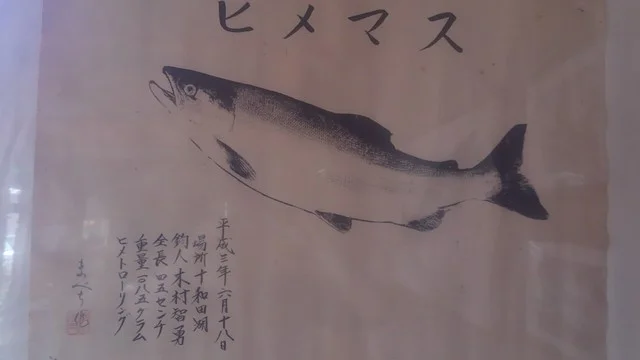 ヒメマス
平成三年六月十八日
場所 十和田湖
釣人 木村智勇
全長 四五センチ
重量 一〇八五グラム
ヒメトローリング
まべち